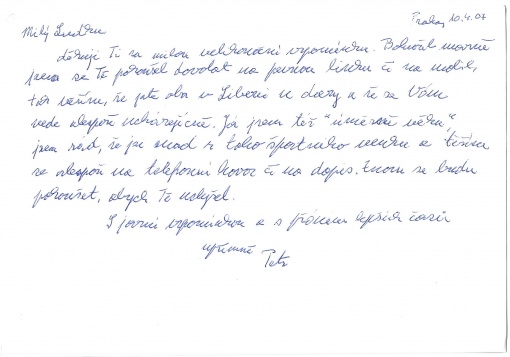 Praha, 10.4.07
Milý Luďku
děkuji Ti za milou velikonoční vzpomínku. Bohužel marně
jsem se Tě pokoušel dovolat na pevnou linku či na mobil,
tak věřím, že jste oba v Liberci u dcery a že se Vám
vede alespoň uspokojivě. Já jsem též "úměrně věku",
jsem rád, že je snad z toho špatného venku a těším
se alespoň na telefonní hovor či na dopis. Znovu se budu
pokoušet, abych Tě uslyšel.
S jarní vzpomínkou a s přáním lepších časů
upřímně
Petr